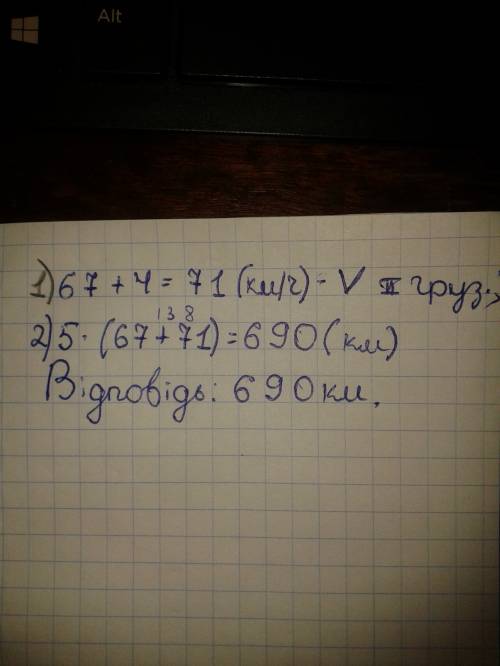 Alt
1) 67 + 4 = 71 (км/г) - V II груз.;
13 8
2) 5 · (67 + 71) = 690 (км)
Відповідь: 690 км.